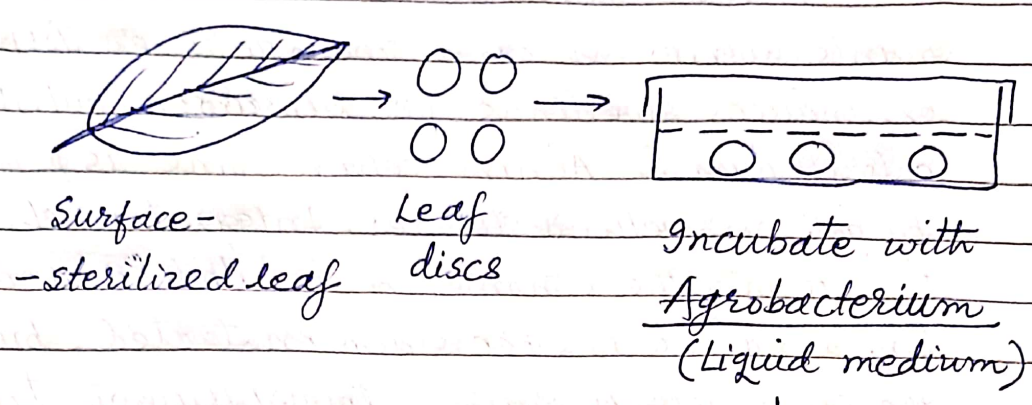 Surface-
-sterilized leaf
Leaf
discs
Incubate with
Agrobacterium
(Liquid medium)